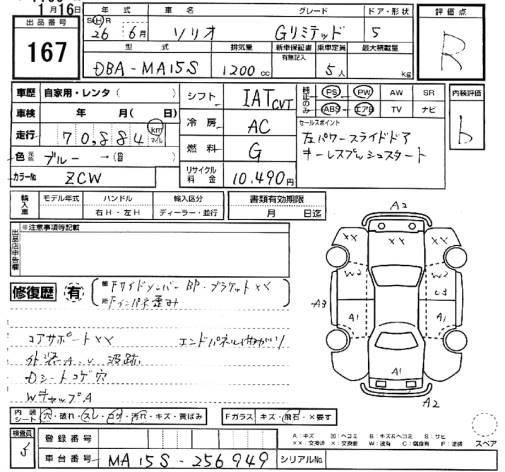 月16日
出品番号
167
年式 車名 グレード ドア・形状
S(H)R 26 6月 ソリオ Gリミテッド 5
型式 排気量 新車保証書 有無記入 乗車定員 最大積載量
DBA-MA15S 1200cc 5人 kg
評価点
R
車歴 自家用・レンタ( )
車検 年 月( 日)
走行 70,884 km マイル
色 ブルー →( )
カラーNo. ZCW
シフト IAT CVT
冷房 AC
燃料 G
リサイクル料金 10,490円
純正のみ PS PW AW SR
ABS エアB TV ナビ
内装評価
b
セールスポイント
左パワースライドドア
キーレスプッシュスタート
輸入車 モデル年式 ハンドル 輸入区分
右H・左H ディーラー・並行
書類有効期限
月 日迄
出品店申告欄 ※注意事項等記載
修復歴 有
FサイドメンバーBP・ブラケットXX
Fインパネ歪み
コアサポートXX エンドパネル曲がり
Dシートコゲ穴
WチップA
A2
XX XX XX
W2
A3 A1 A1
A1
A2
内装シート 穴・破れ・スレ・コゲ・汚れ・キズ・黄ばみ
Fガラス キズ・飛石・×要す
A:キズ B:キズ&ヘコミ S:サビ
XX:交換済 X:交換要 W:波有 C:腐食有 P:塗装
スペア
検査員
登録番号
車台番号 MA15S-256949 シリアルNo.